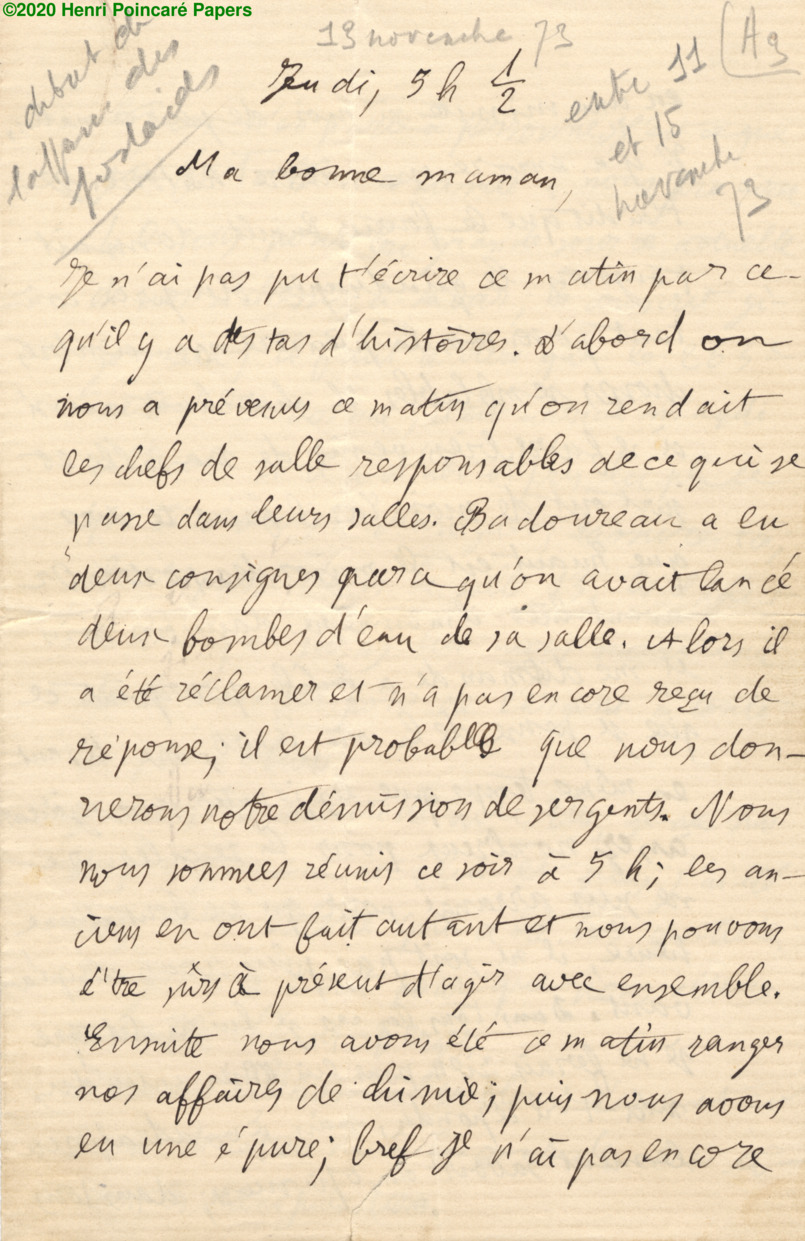 ©2020 Henri Poincaré Papers
13 novembre 73
A9
début de
l'affaire des
entre 11
et 15
novembre
73
Jeudi, 5 h 1/2
Ma bonne maman,
Je n'ai pas pu t'écrire ce matin par ce-
qu'il y a des tas d'histoires. D'abord on
nous a prévenus ce matin qu'on rendait
les chefs de salle responsables de ce qui se
passe dans leurs salles. Badoureau a eu
deux consignes parce qu'on avait lancé
deux bombes d'eau de sa salle. Alors il
a été réclamer et n'a pas encore reçu de
réponse; il est probable que nous don-
nerons notre démission de sergents. Nous
nous sommes réunis ce soir à 5 h; les an-
ciens en ont fait autant et nous pouvons
être sûrs à présent d'agir avec ensemble.
Ensuite nous avons été ce matin ranger
nos affaires de chimie; puis nous avons
eu une épure; bref je n'ai pas encore